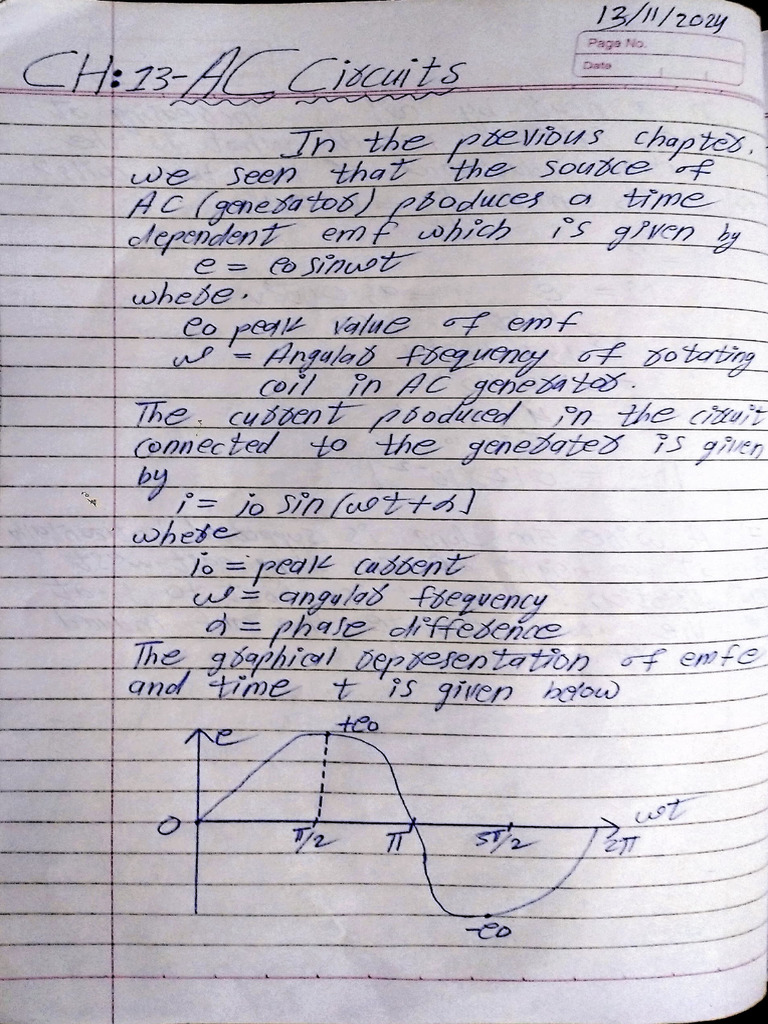 13/11/2024
Page No.
Date
CH:13-AC Circuits
In the previous chapter,
we seen that the source of
AC (generator) produces a time
dependent emf which is given by
e = eo sinωt
where.
eo peak value of emf
ω = Angular frequency of rotating
coil in AC generator.
The current produced in the circuit
connected to the generater is given
by
i = io sin [ωt+α]
where
io = peak current
ω = angular frequency
α = phase difference
The graphical representation of emfe
and time t is given below
e
+eo
0
π/2
π
5π/2
2π
ωt
-eo